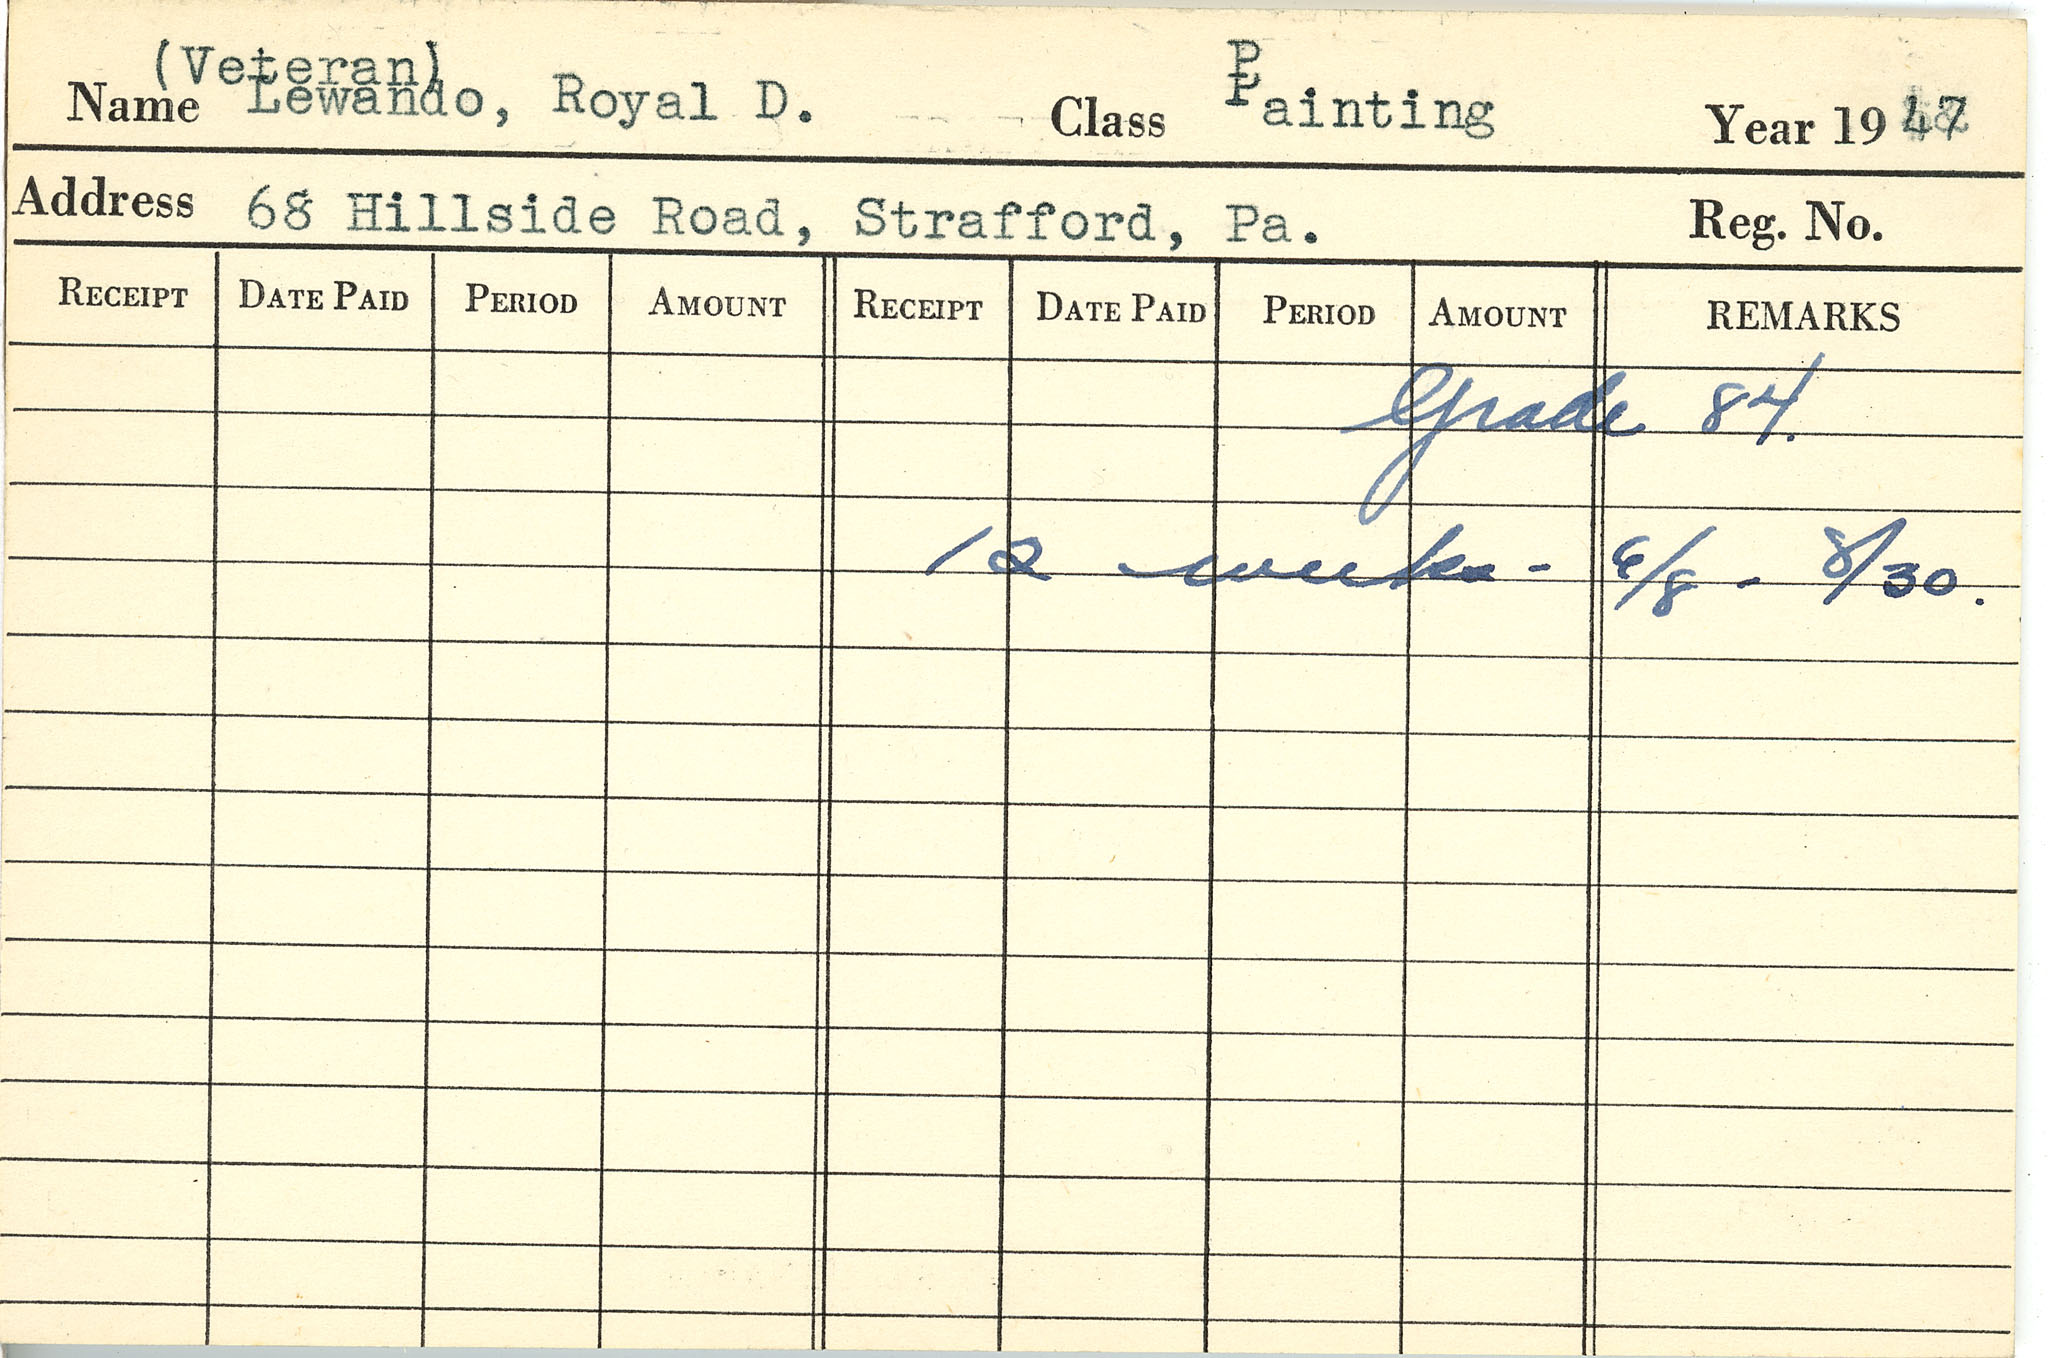 (Veteran) P
Name Lewando, Royal D. Class Painting Year 1947
Address 68 Hillside Road, Strafford, Pa. Reg. No.
RECEIPT DATE PAID PERIOD AMOUNT RECEIPT DATE PAID PERIOD AMOUNT REMARKS
Grade 84.
12 weeks - 6/8 - 8/30.